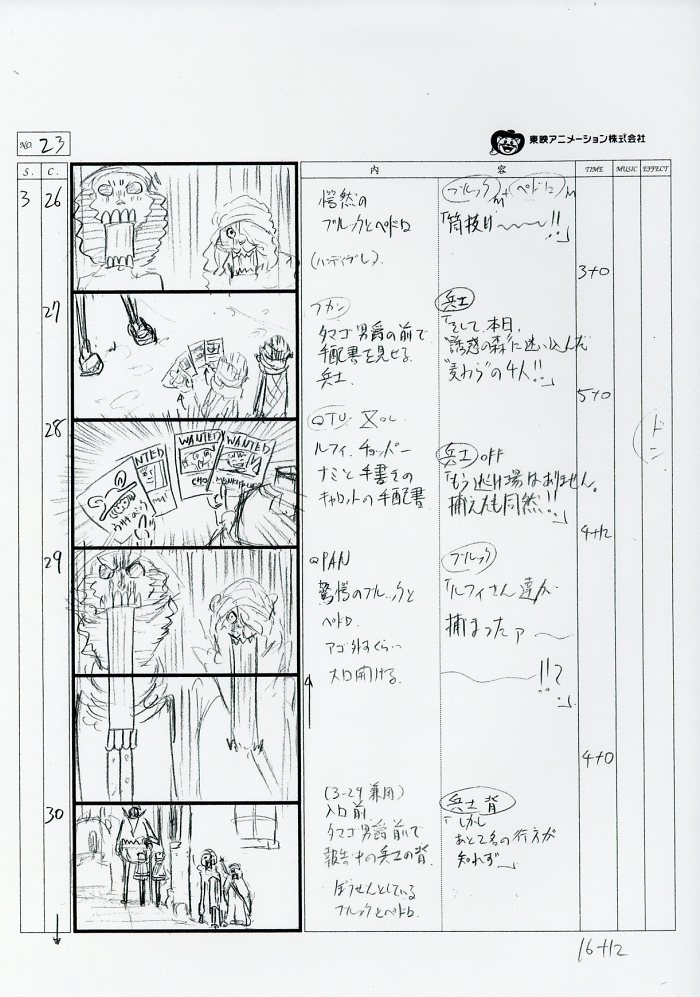 No. 23
東映アニメーション株式会社
S. C. 内 容 TIME MUSIC EFFECT
3 26
愕然の
ブルックとペドロ
(ハンディブレ)
ブルック ペドロ
「筒抜け〜〜!!」
3+0
27
フカン
タマゴ男爵の前で
手配書を見せる
兵士
兵士
「そして、本日、
"誘惑の森"に迷い込んだ
"麦わら"の4人!!」
5+0
28
WANTED
WANTED
WANTED
CHO
QTU
ルフィ、チョッパー
ナミと手書きの
キャロットの手配書
兵士 OFF
「もう逃げ場はありません。
捕えたも同然!!」
ドン
4+12
29
QPAN
驚愕のブルックと
ペドロ
アゴ外すぐらい
大口開ける
ブルック
「ルフィさん達が
捕まったァ〜
〜〜!!?」
4+0
30
(3-24兼用)
入口前
タマゴ男爵前で
報告中の兵士の背
ぼうぜんとしている
ブルックとペドロ
兵士 背
「しかし
あと2名の行方が
知れず」
16+12